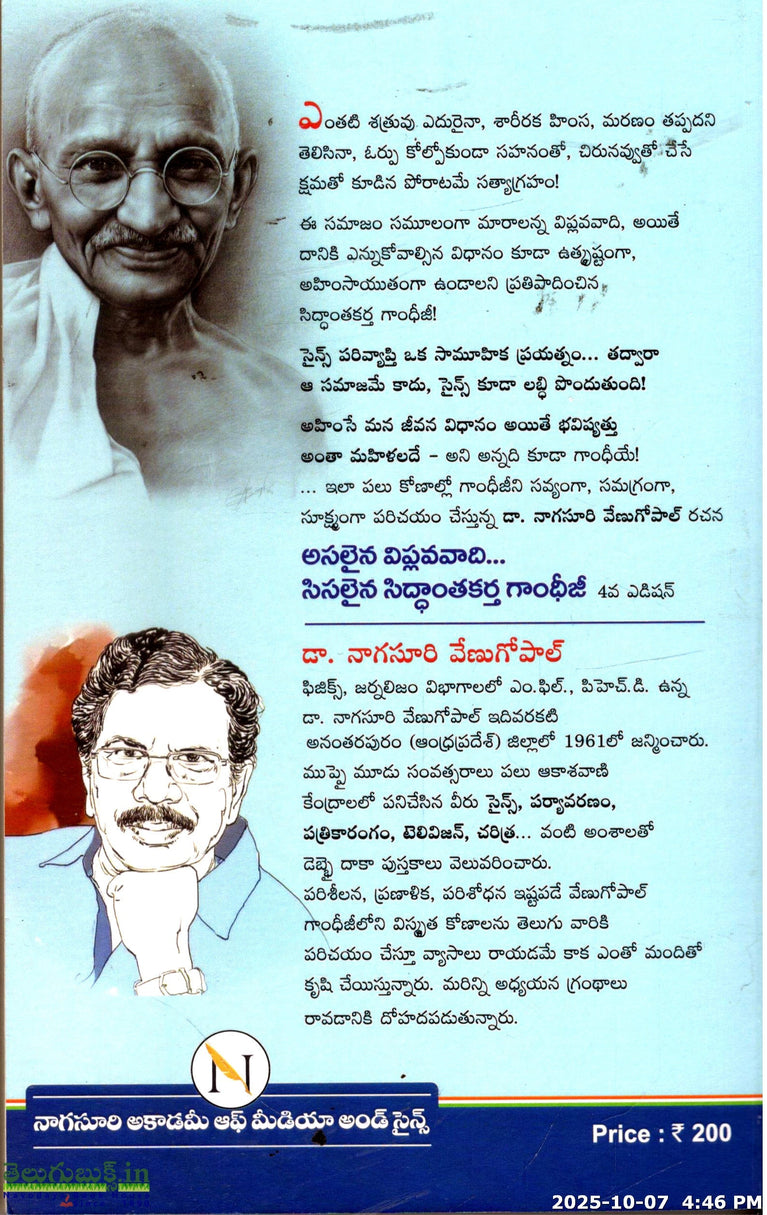 ఎంతటి శత్రువు ఎదురైనా, శారీరక హింస, మరణం తప్పదని
తెలిసినా, ఓర్పు కోల్పోకుండా సహనంతో, చిరునవ్వుతో చేసే
క్షమతో కూడిన పోరాటమే సత్యాగ్రహం!
ఈ సమాజం సమూలంగా మారాలన్న విప్లవవాది, అయితే
దానికి ఎన్నుకోవాల్సిన విధానం కూడా ఉత్కృష్టంగా,
అహింసాయుతంగా ఉండాలని ప్రతిపాదించిన
సిద్ధాంతకర్త గాంధీజీ!
సైన్స్ పరివ్యాప్తి ఒక సామూహిక ప్రయత్నం... తద్వారా
ఆ సమాజమే కాదు, సైన్స్ కూడా లబ్ధి పొందుతుంది!
అహింసే మన జీవన విధానం అయితే భవిష్యత్తు
అంతా మహిళలదే – అని అన్నది కూడా గాంధీయే!
... ఇలా పలు కోణాల్లో గాంధీజీని సవ్యంగా, సమగ్రంగా,
సూక్ష్మంగా పరిచయం చేస్తున్న డా. నాగసూరి వేణుగోపాల్ రచన
అసలైన విప్లవవాది...
సిసలైన సిద్ధాంతకర్త గాంధీజీ 4వ ఎడిషన్
డా. నాగసూరి వేణుగోపాల్
ఫిజిక్స్, జర్నలిజం విభాగాలలో ఎం.ఫిల్., పిహెచ్.డి. ఉన్న
డా. నాగసూరి వేణుగోపాల్ ఇదివరకటి
అనంతరపురం (ఆంధ్రప్రదేశ్) జిల్లాలో 1961లో జన్మించారు.
ముప్పై మూడు సంవత్సరాలు పలు ఆకాశవాణి
కేంద్రాలలో పనిచేసిన వీరు సైన్స్, పర్యావరణం,
పత్రికారంగం, టెలివిజన్, చరిత్ర... వంటి అంశాలతో
డెబ్భై దాకా పుస్తకాలు వెలువరించారు.
పరిశీలన, ప్రణాళిక, పరిశోధన ఇష్టపడే వేణుగోపాల్
గాంధీజీలోని విస్మృత కోణాలను తెలుగు వారికి
పరిచయం చేస్తూ వ్యాసాలు రాయడమే కాక ఎంతో మందితో
కృషి చేయిస్తున్నారు. మరిన్ని అధ్యయన గ్రంథాలు
రావడానికి దోహదపడుతున్నారు.
N
నాగసూరి అకాడమీ ఆఫ్ మీడియా అండ్ సైన్స్
Price : ₹ 200
తెలుగుబుక్స్.in
2025-10-07 4:46 PM